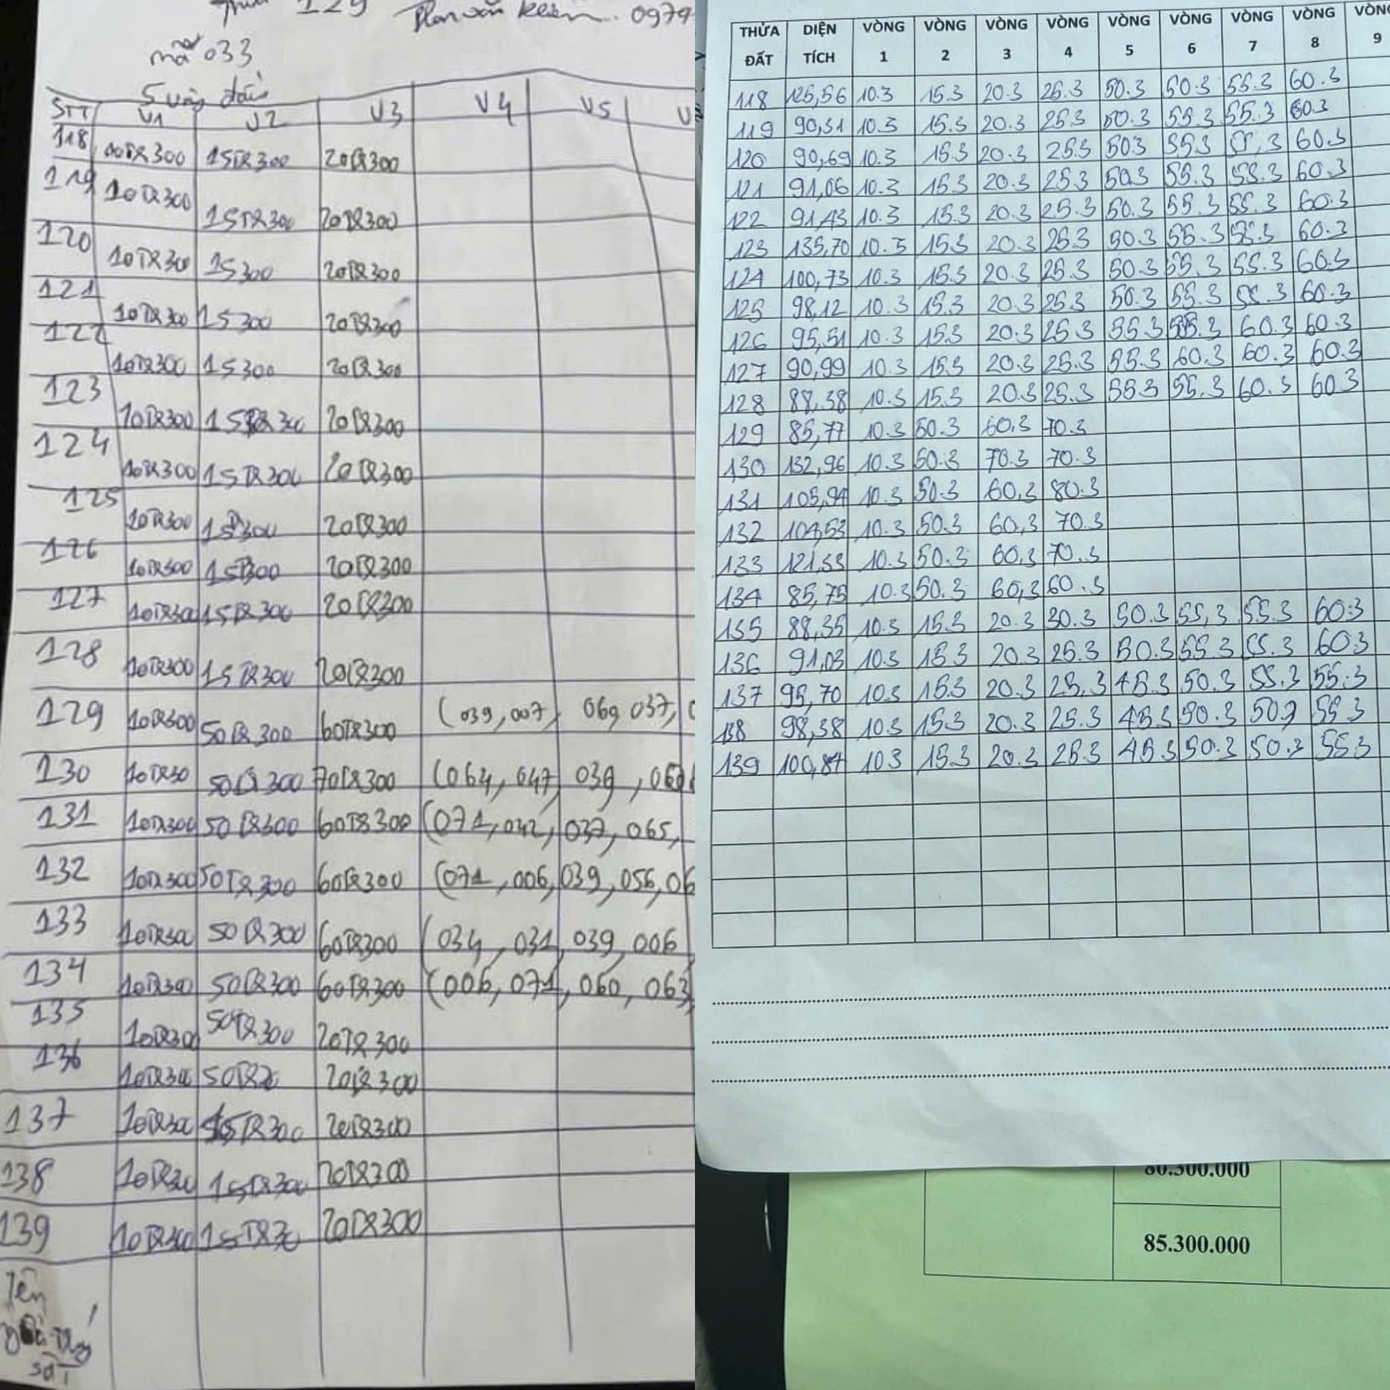 129 Phan văn Khiêm. 0979
mã 033
5 vòng đấu
STT V1 V2 V3 V4 V5 V
118 10TR300 15TR300 20TR300
119 10TR300 15TR300 20TR300
120 10TR300 15300 20TR300
121 10TR300 15300 20TR300
122 10TR300 15300 20TR300
123 10TR300 15TR300 20TR300
124 10TR300 15TR300 20TR300
125 10TR300 15TR300 20TR300
126 10TR300 15TR300 20TR300
127 10TR300 15TR300 20TR300
128 10TR300 15TR300 20TR300
129 10TR300 50TR300 60TR300 (039, 007, 069, 037,
130 10TR30 50TR300 70TR300 (064, 047, 039,
131 10TR300 50TR300 60TR300 (071, 042, 037, 065,
132 10TR300 50TR300 60TR300 (071, 006, 039, 056, 06
133 10TR300 50TR300 60TR300 (034, 031, 039, 006
134 10TR300 50TR300 60TR300 (006, 071, 060, 063
135 10TR300 50TR300 20TR300
136 10TR300 20TR300
137 10TR300 15TR300 20TR300
138 10TR30 15TR300 20TR300
139 10TR300 15TR30 20TR300
Tên
THỬA ĐẤT DIỆN TÍCH VÒNG 1 VÒNG 2 VÒNG 3 VÒNG 4 VÒNG 5 VÒNG 6 VÒNG 7 VÒNG 8 VÒNG 9
118 125,56 10.3 15.3 20.3 25.3 50.3 50.3 55.3 60.3
119 90,31 10.3 15.3 20.3 25.3 50.3 55.3 55.3 60.3
120 90,69 10.3 15.3 20.3 25.3 503 553 55,3 60.3
121 91,06 10.3 15.3 20.3 25.3 50.3 55.3 55.3 60.3
122 91,43 10.3 15.3 20.3 25.3 50.3 55.3 55.3 60.3
123 135,70 10.3 15.3 20.3 25.3 50.3 55.3 55.3 60.3
124 100,73 10.3 15.3 20.3 25.3 50.3 55.3 55.3 60.3
125 98,12 10.3 15.3 20.3 25.3 50.3 55.3 55.3 60.3
126 95,51 10.3 15.3 20.3 25.3 55.3 55.3 60.3 60.3
127 90,99 10.3 15.3 20.3 25.3 55.3 60.3 60.3 60.3
128 88,38 10.3 15.3 20.3 25.3 55.3 55.3 60.3 60.3
129 85,77 10.3 50.3 60,3 70.3
130 132,96 10.3 50.3 70.3 70.3
131 105,94 10.3 50.3 60,3 80.3
132 10.3 50.3 60,3 70.3
133 121,33 10.3 50.3 60,3 70.3
134 85,75 10.3 50.3 60,3 60.3
135 88,35 10.3 15.3 20.3 30.3 50.3 55,3 55.3 60.3
136 91,03 10.3 15.3 20.3 25.3 50.3 55.3 55.3 60.3
137 95,70 10.3 15.3 20.3 25.3 45.3 50.3 55.3 55.3
138 98,38 10.3 15.3 20.3 25.3 45.3 50.3 55.3
139 100,87 10.3 15.3 20.3 25.3 45.3 50.3 50.3 55.3
80.300.000
85.300.000